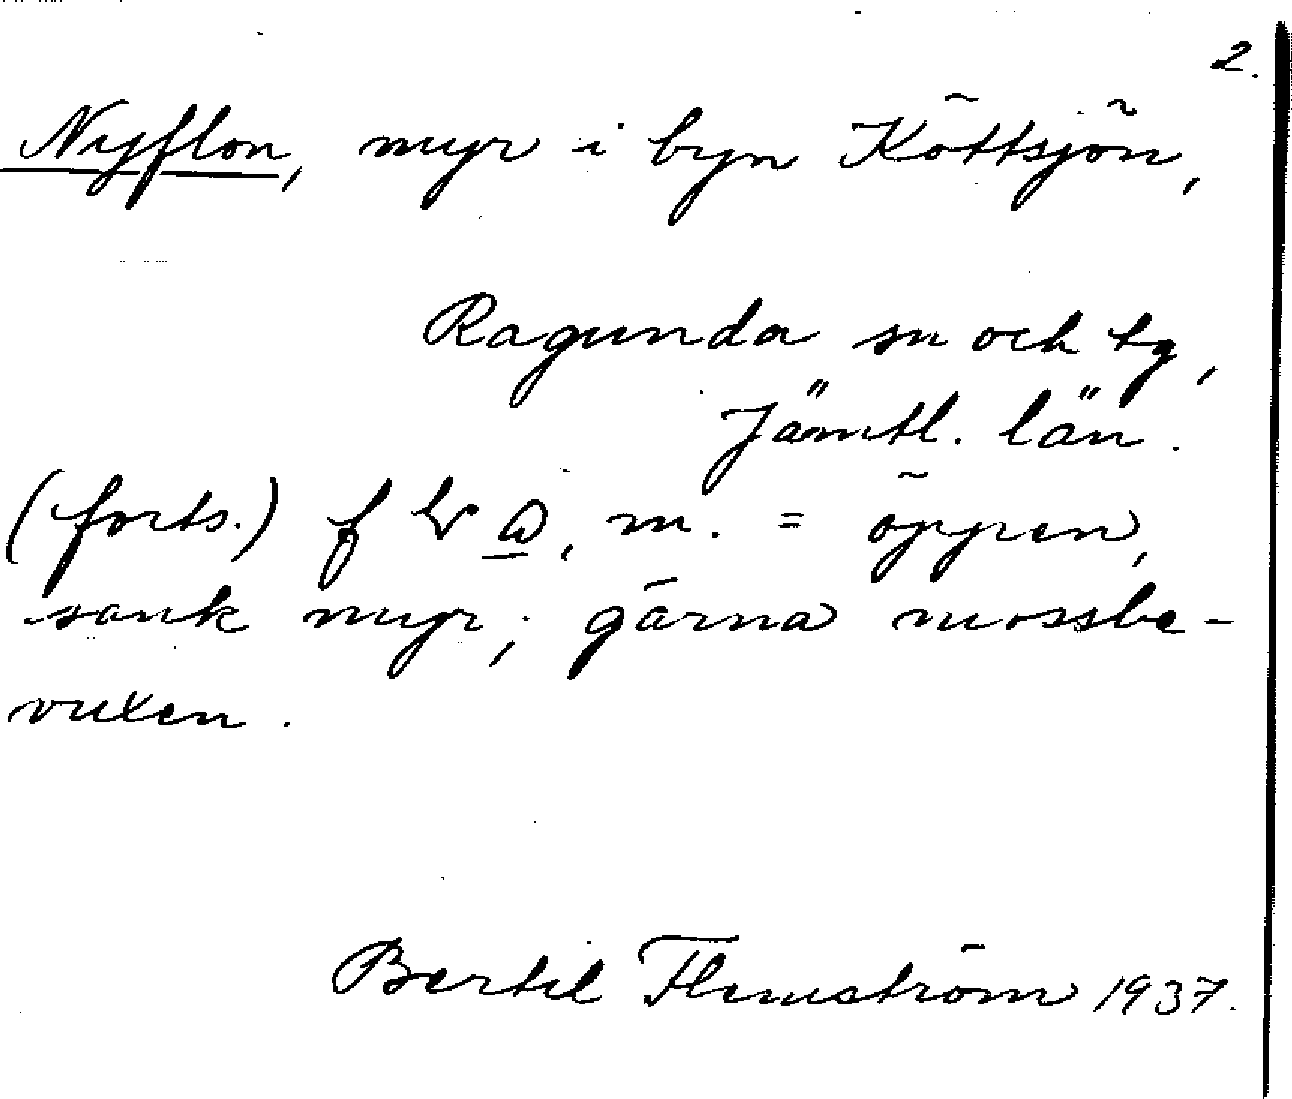 2.
Nyflon, myr i byn Köttsjön,
Ragunda sn och tg,
Jämtl. län.
(forts.) m. = öppen,
sank myr; gärna mossbe-
vuxen.
Bertil Flemström 1937.